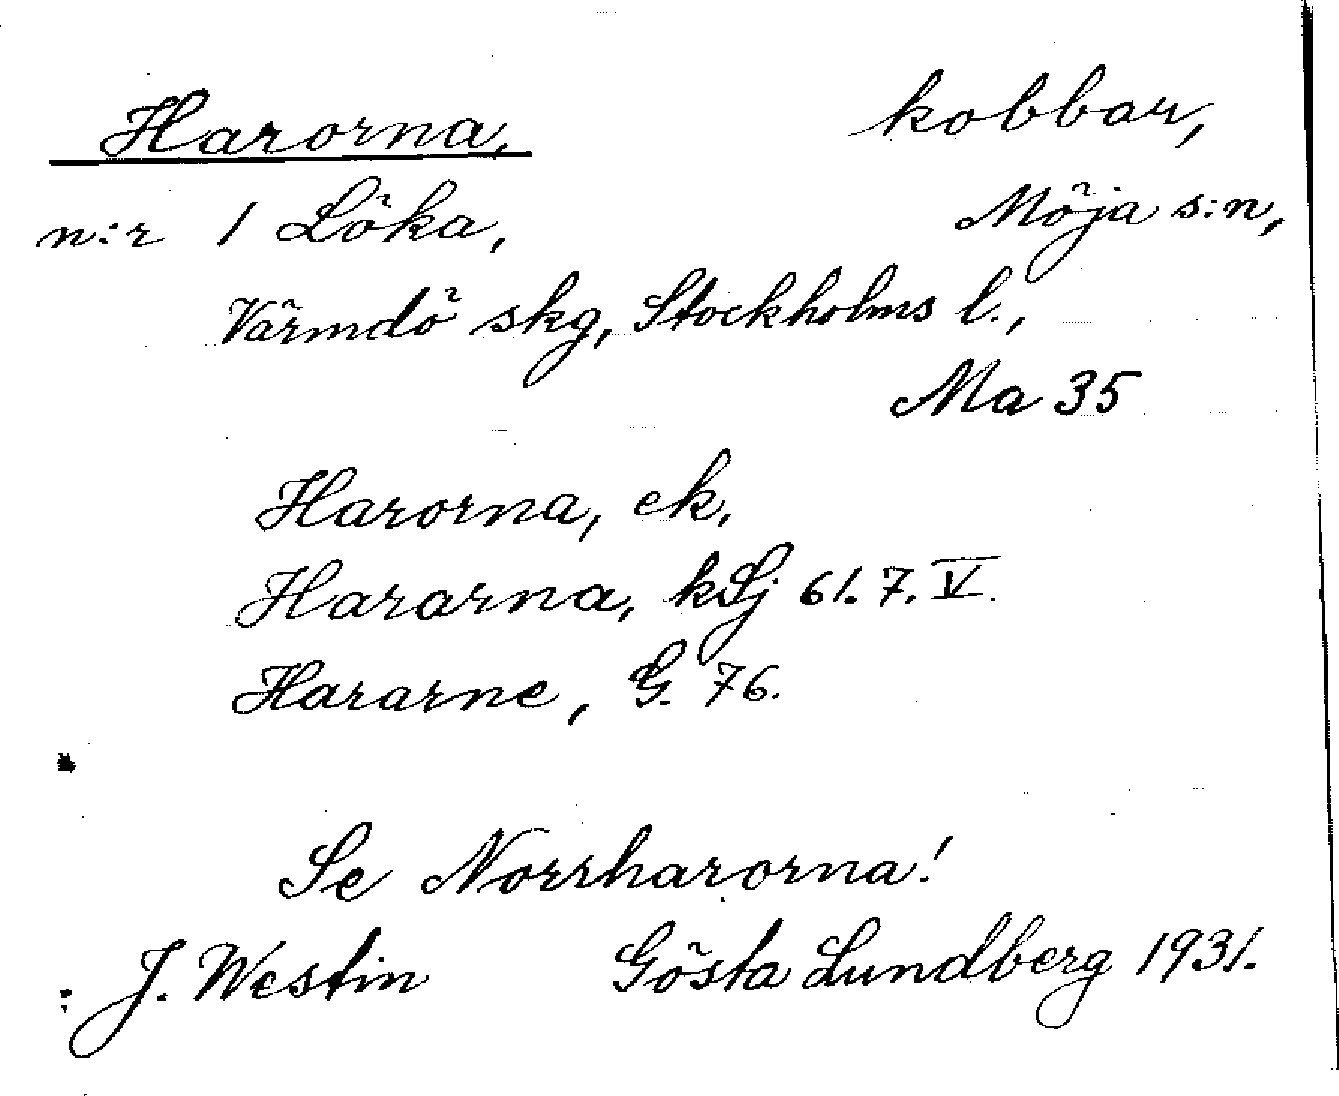 Harorna, kobbar,
n:r 1 Löka, Möja s:n,
Värmdö skg, Stockholms l.,
Ma 35
Harorna, ek.
Hararna, kSj 61. 7. V.
Hararne, G. 76.
Se Norrharorna!
J. Westin Gösta Lundberg 1931.